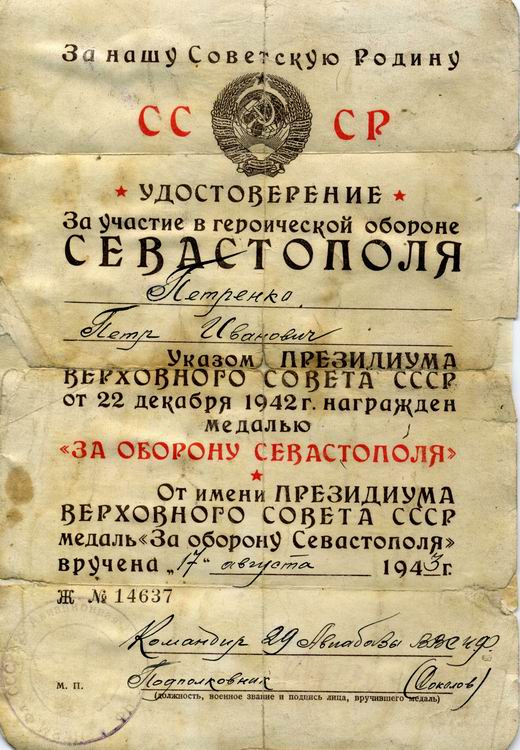 За нашу Советскую Родину
СССР
УДОСТОВЕРЕНИЕ
За участие в героической обороне
СЕВАСТОПОЛЯ
Петренко
Петр Иванович
Указом ПРЕЗИДИУМА
ВЕРХОВНОГО СОВЕТА СССР
от 22 декабря 1942 г. награжден
медалью
«ЗА ОБОРОНУ СЕВАСТОПОЛЯ»
От имени ПРЕЗИДИУМА
ВЕРХОВНОГО СОВЕТА СССР
медаль «За оборону Севастополя»
вручена „17" августа 1943 г.
Ж № 14637
Командир 29 Авиабазы ВВС ЧФ
Подполковник (Соколов)
М. П. (должность, военное звание и подпись лица, вручившего медаль)